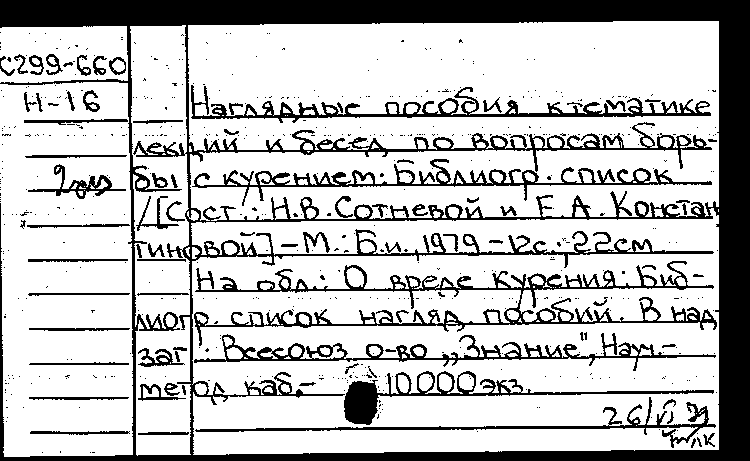 С299-660
Н-16
Наглядные пособия к тематике
лекций и бесед по вопросам борь-
бы с курением: Библиогр. список
/[Сост.: Н.В. Сотневой и Е.А. Констан
тиновой].-М.: Б.и., 1979 - 12с.; 22см
На обл.: О вреде курения: Биб-
лиогр. список нагляд. пособий. В над
заг.: Всесоюз. о-во „Знание", Науч.-
метод. каб.- 10000экз.
26/VI 79